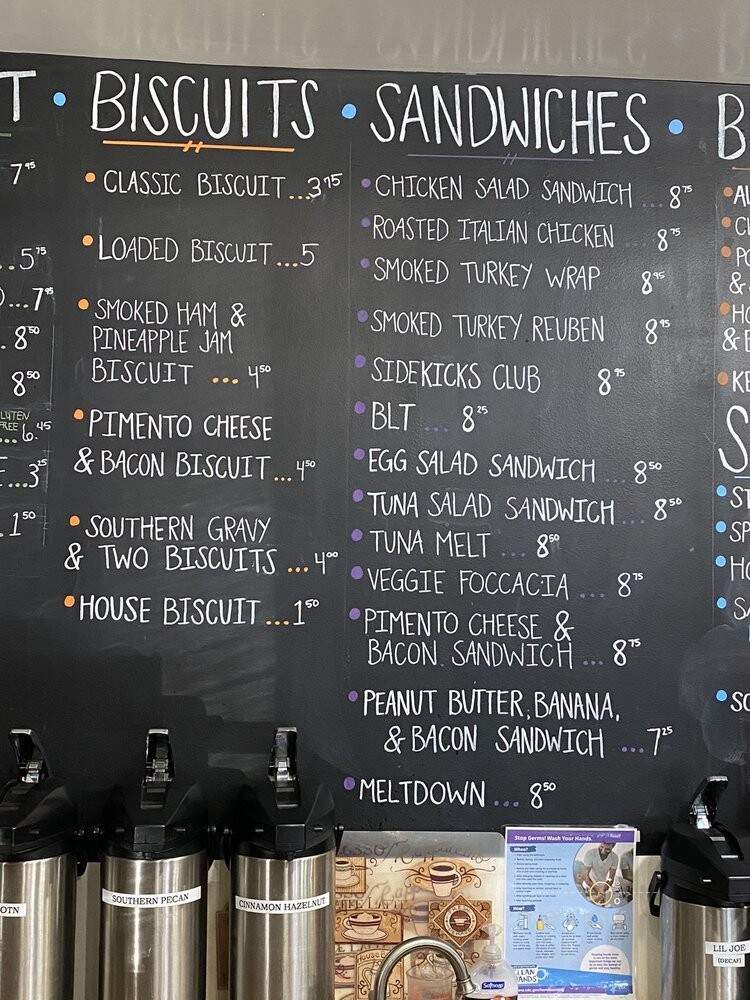 T • BISCUITS • SANDWICHES • B
7⁹⁵
..5⁷⁵
...7⁹⁵
. 8⁵⁰
8⁵⁰
GLUTEN
FREE
... 6.⁴⁵
...3²⁵
..1⁵⁰
• CLASSIC BISCUIT...3⁷⁵
• LOADED BISCUIT...5
• SMOKED HAM &
PINEAPPLE JAM
BISCUIT ... 4⁵⁰
• PIMENTO CHEESE
& BACON BISCUIT...4⁵⁰
• SOUTHERN GRAVY
& TWO BISCUITS ...4⁰⁰
• HOUSE BISCUIT...1⁵⁰
• CHICKEN SALAD SANDWICH ... 8⁷⁵
• ROASTED ITALIAN CHICKEN ... 8⁷⁵
• SMOKED TURKEY WRAP 8⁹⁵
• SMOKED TURKEY REUBEN 8⁹⁵
• SIDEKICKS CLUB 8⁹⁵
• BLT ... 8²⁵
• EGG SALAD SANDWICH ... 8⁵⁰
• TUNA SALAD SANDWICH ... 8⁵⁰
• TUNA MELT ... 8⁵⁰
• VEGGIE FOCCACIA ... 8⁷⁵
• PIMENTO CHEESE &
BACON SANDWICH ... 8⁷⁵
• PEANUT BUTTER, BANANA,
& BACON SANDWICH ...7²⁵
• MELTDOWN ... 8⁵⁰
& E
• KE
S
• ST
• SP
• HO
• SA
• SO
OTN
SOUTHERN PECAN
CINNAMON HAZELNUT
Stop Germs! Wash Your Hands.
When?
How?
Softsoap
LIL JOE
[DECAF]